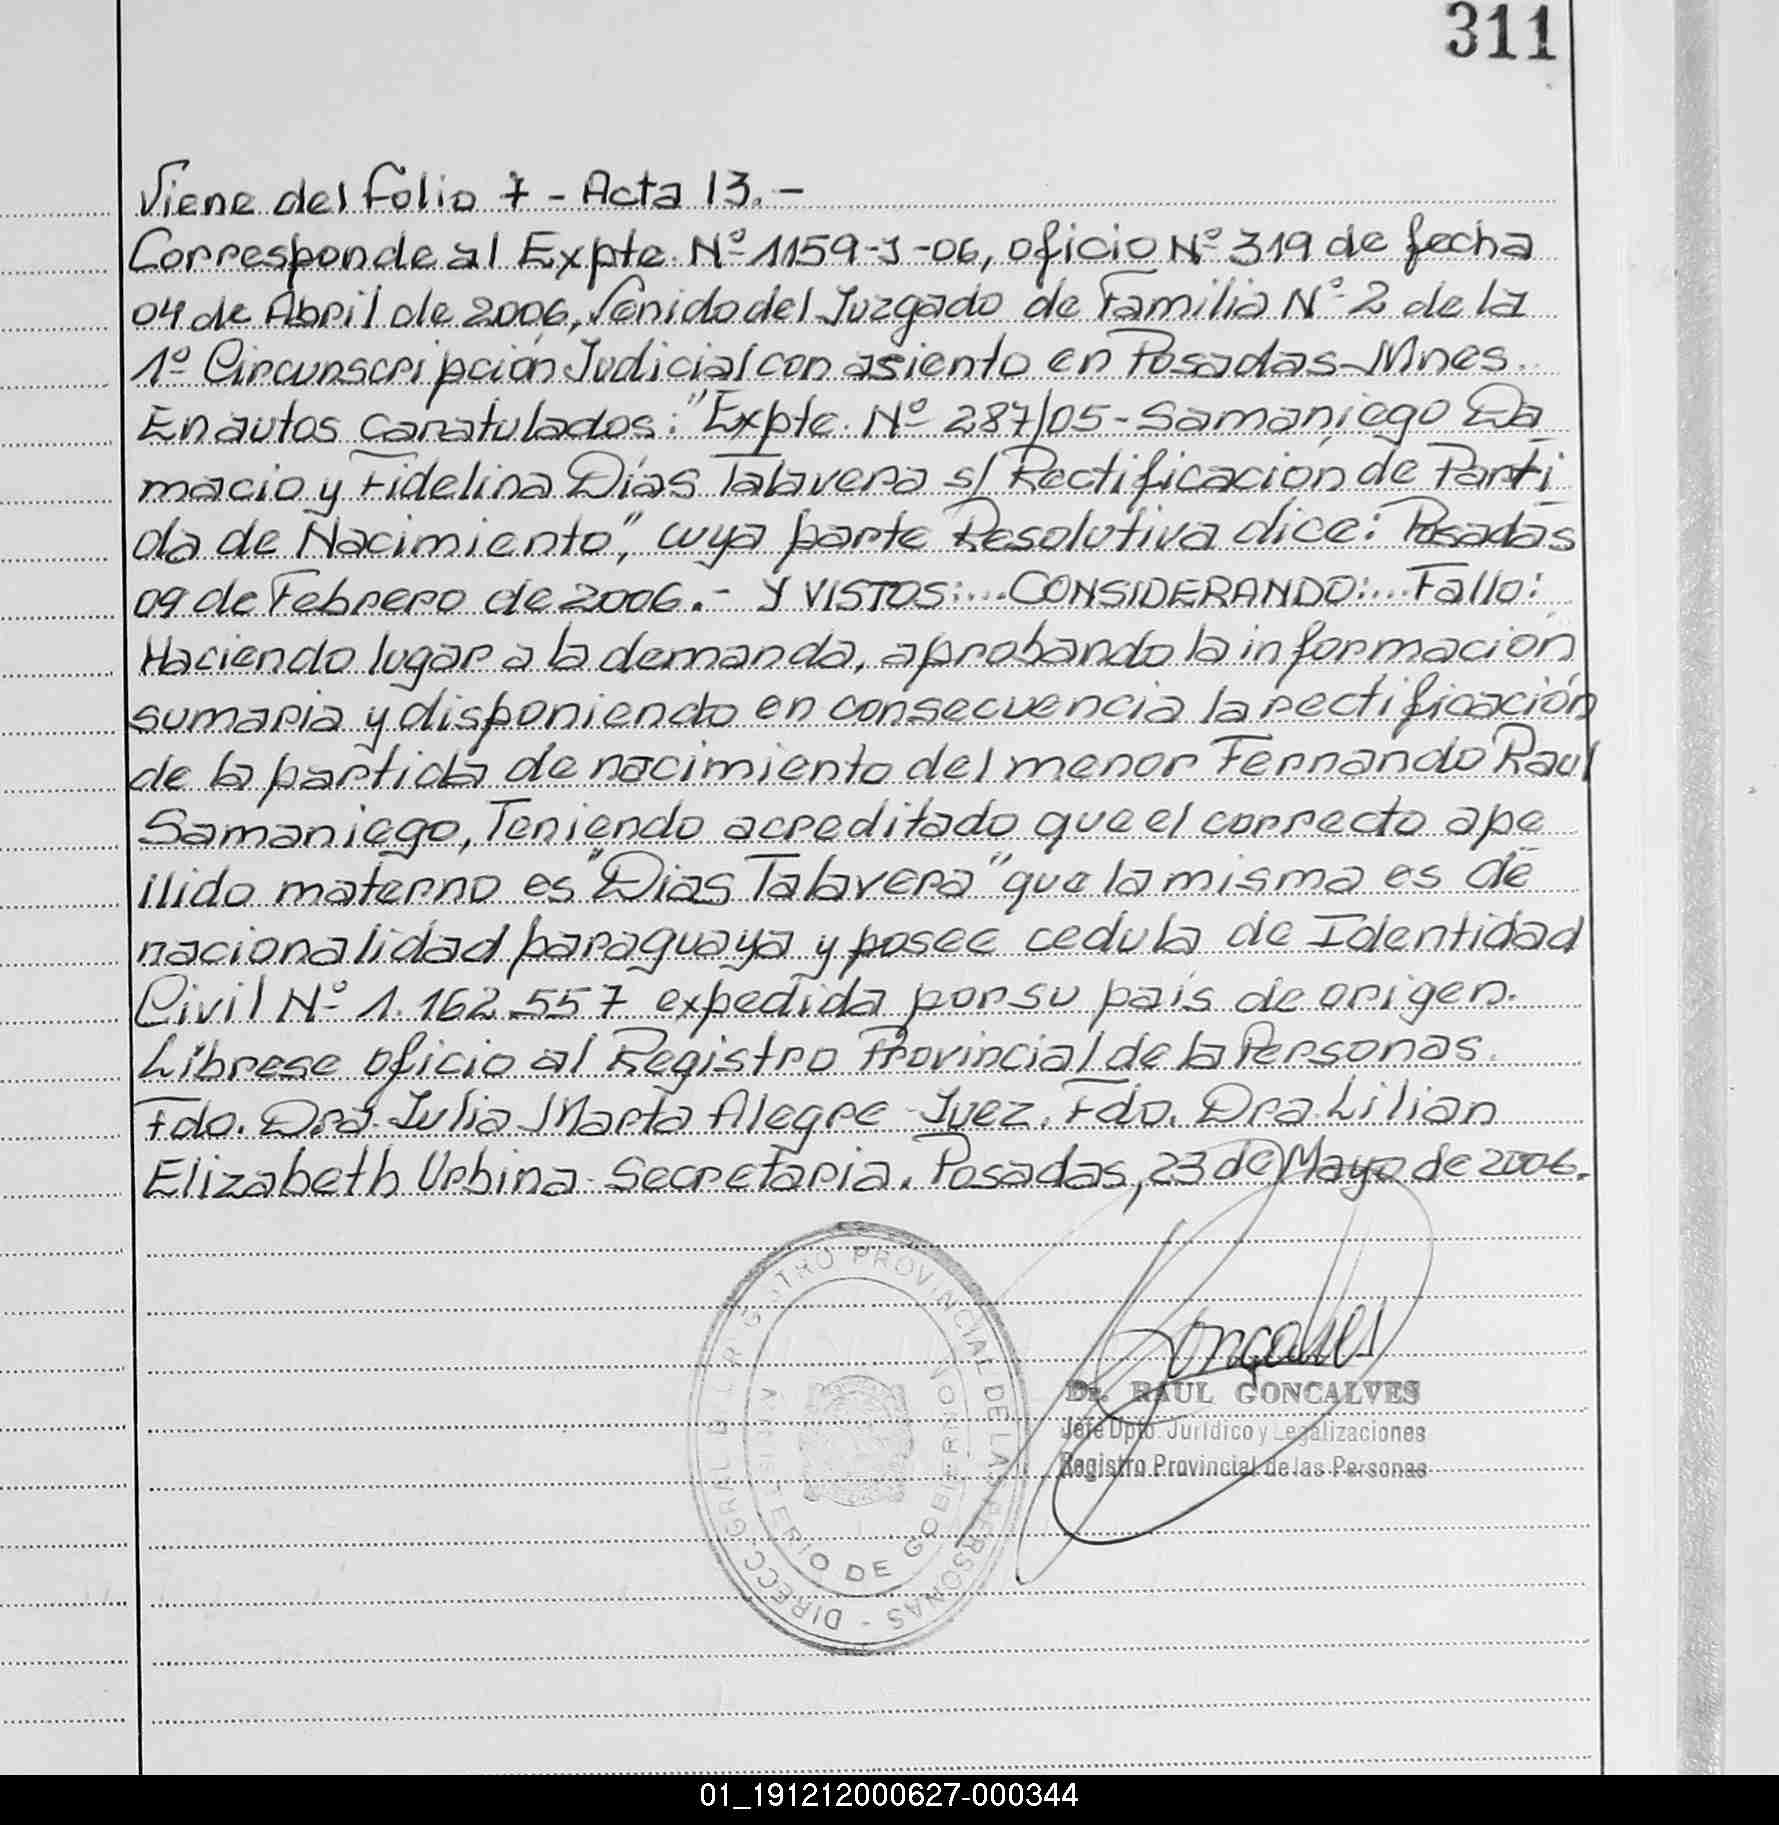 311
Viene del folio 7 - Acta 13.-
Corresponde al Expte. Nº 1159-J-06, oficio Nº 319 de fecha
04 de Abril de 2006, Venido del Juzgado de Familia Nº 2 de la
1º Circunscripción Judicial con asiento en Posadas-Mnes.
En autos caratulados: "Expte. Nº 287/05 - Samaniego Da
macio y Fidelina Días Talavera s/ Rectificación de Parti
da de Nacimiento", cuya parte Resolutiva dice: Posadas
09 de Febrero de 2006.- Y VISTOS:... CONSIDERANDO:... Fallo:
Haciendo lugar a la demanda, aprobando la información
sumaria y disponiendo en consecuencia la rectificación
de la partida de nacimiento del menor Fernando Raul
Samaniego, Teniendo acreditado que el correcto ape
llido materno es "Dias Talavera" que la misma es de
nacionalidad paraguaya y posee cedula de Identidad
Civil Nº 1.162.557 expedida por su país de origen.
Líbrese oficio al Registro Provincial de la Personas.
Fdo. Dra. Julia Marta Alegre - Juez. Fdo. Dra. Lilian
Elizabeth Urbina - Secretaria. Posadas, 23 de Mayo de 2006.
DIRECC. GRAL. DEL REGISTRO PROVINCIAL DE LAS PERSONAS -
MINISTERIO DE GOBIERNO
Gonçalves
Dr. RAUL GONCALVES
Jefe Dpto. Jurídico y Legalizaciones
Registro Provincial de las Personas
01_191212000627-000344